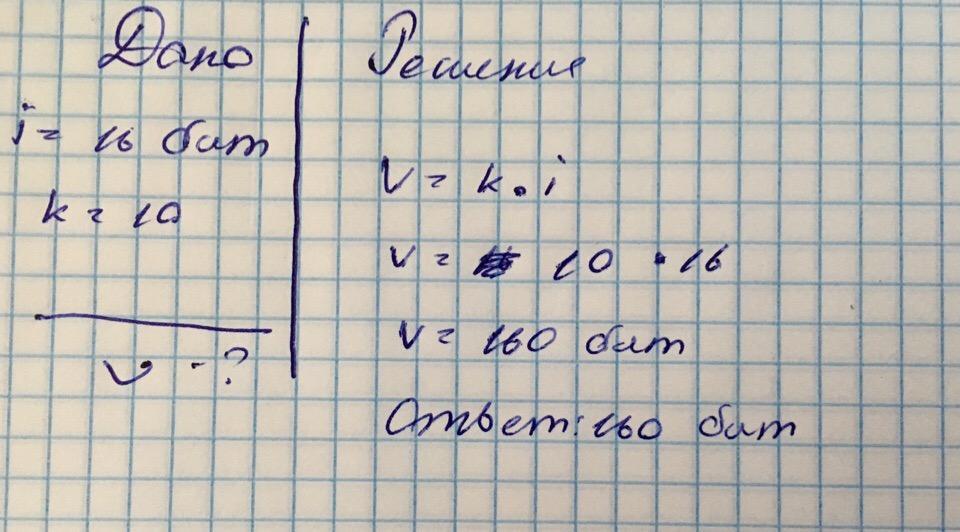 Дано
i = 16 бит
k = 10
V - ?
Решение
V = k • i
V = 10 • 16
V = 160 бит
Ответ: 160 бит